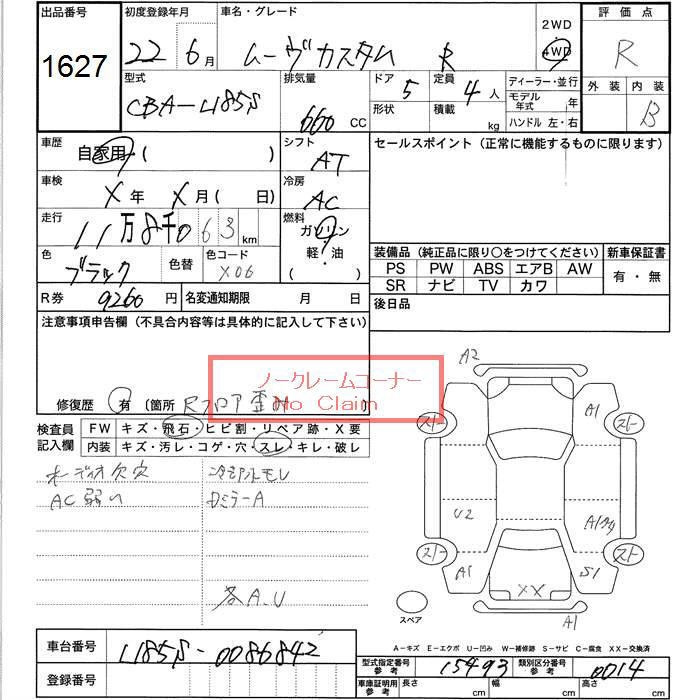 出品番号 1627
初度登録年月 22 6月
車名・グレード ムーヴカスタム R
2WD
4WD
評価点 R
外装 内装 B
型式 CBA-L185S
排気量 660 CC
ドア 5 定員 4 人
形状 積載 kg
ディーラー・並行
モデル年式 年
ハンドル 左・右
車歴 自家用 ( )
シフト AT
セールスポイント (正常に機能するものに限ります)
車検 X 年 X 月 ( 日)
冷房 AC
走行 11万8千063 km
燃料 ガソリン 軽・油 ( )
色 ブラック 色替 色コード X06
装備品 (純正品に限り○をつけてください) 新車保証書
PS PW ABS エアB AW 有・無
SR ナビ TV カワ
R券 9260 円 名変通知期限 月 日
後日品
注意事項申告欄 (不具合内容等は具体的に記入して下さい)
ノークレームコーナー
No Claim
修復歴 有 〔箇所 Rフロア歪み
検査員記入欄
FW キズ・飛石・ヒビ割・リペア跡・X要
内装 キズ・汚レ・コゲ・穴・スレ・キレ・破レ
オーディオ欠穴
AC弱い
ロミラーA
各A.U
A2
A1
スト
スト
U2
スト
スト
A1
S1
XX
A1
スペア
A-キズ E-エクボ U-凹み W-補修跡 S-サビ C-腐食 XX-交換済
車台番号 L185S-0086842
登録番号
型式指定番号 参考 15493 類別区分番号 参考 0014
車庫証明用 参考 長さ cm 幅 cm 高さ cm